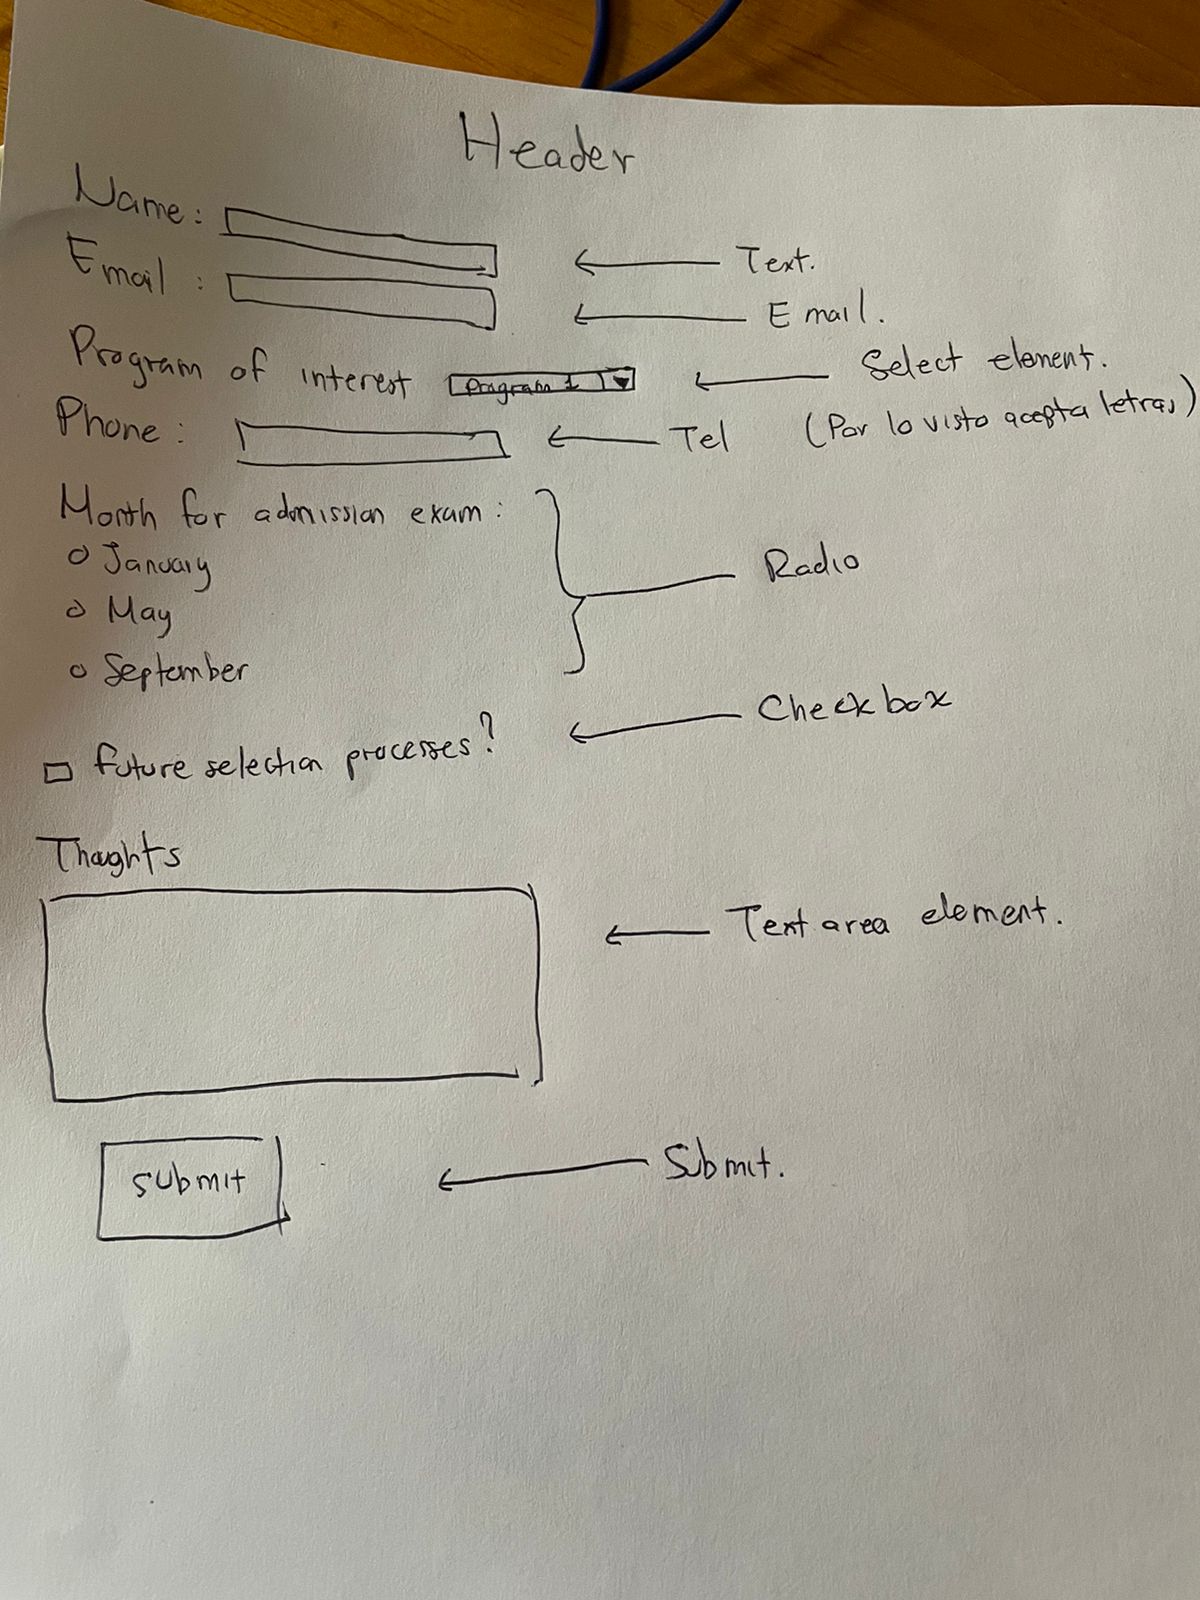 Header
Name :
← Text.
Email :
← Email.
Program of interest Program 1 ← Select element.
Phone : ← Tel (Por lo visto acepta letras)
Month for admission exam :
January
May
September
Radio
future selection processes? ← Checkbox
Thoughts
← Text area element.
submit ← Submit.